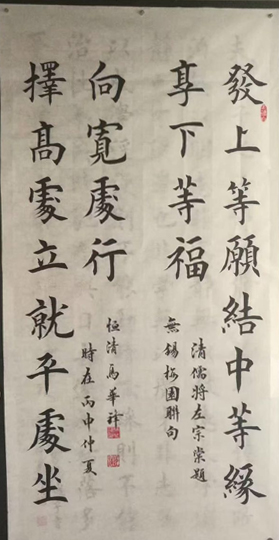 發上等願結中等緣
享下等福
向寬處行
擇高處立就平處坐
清儒將左宗棠題
無錫梅園聯句
時在丙申仲夏